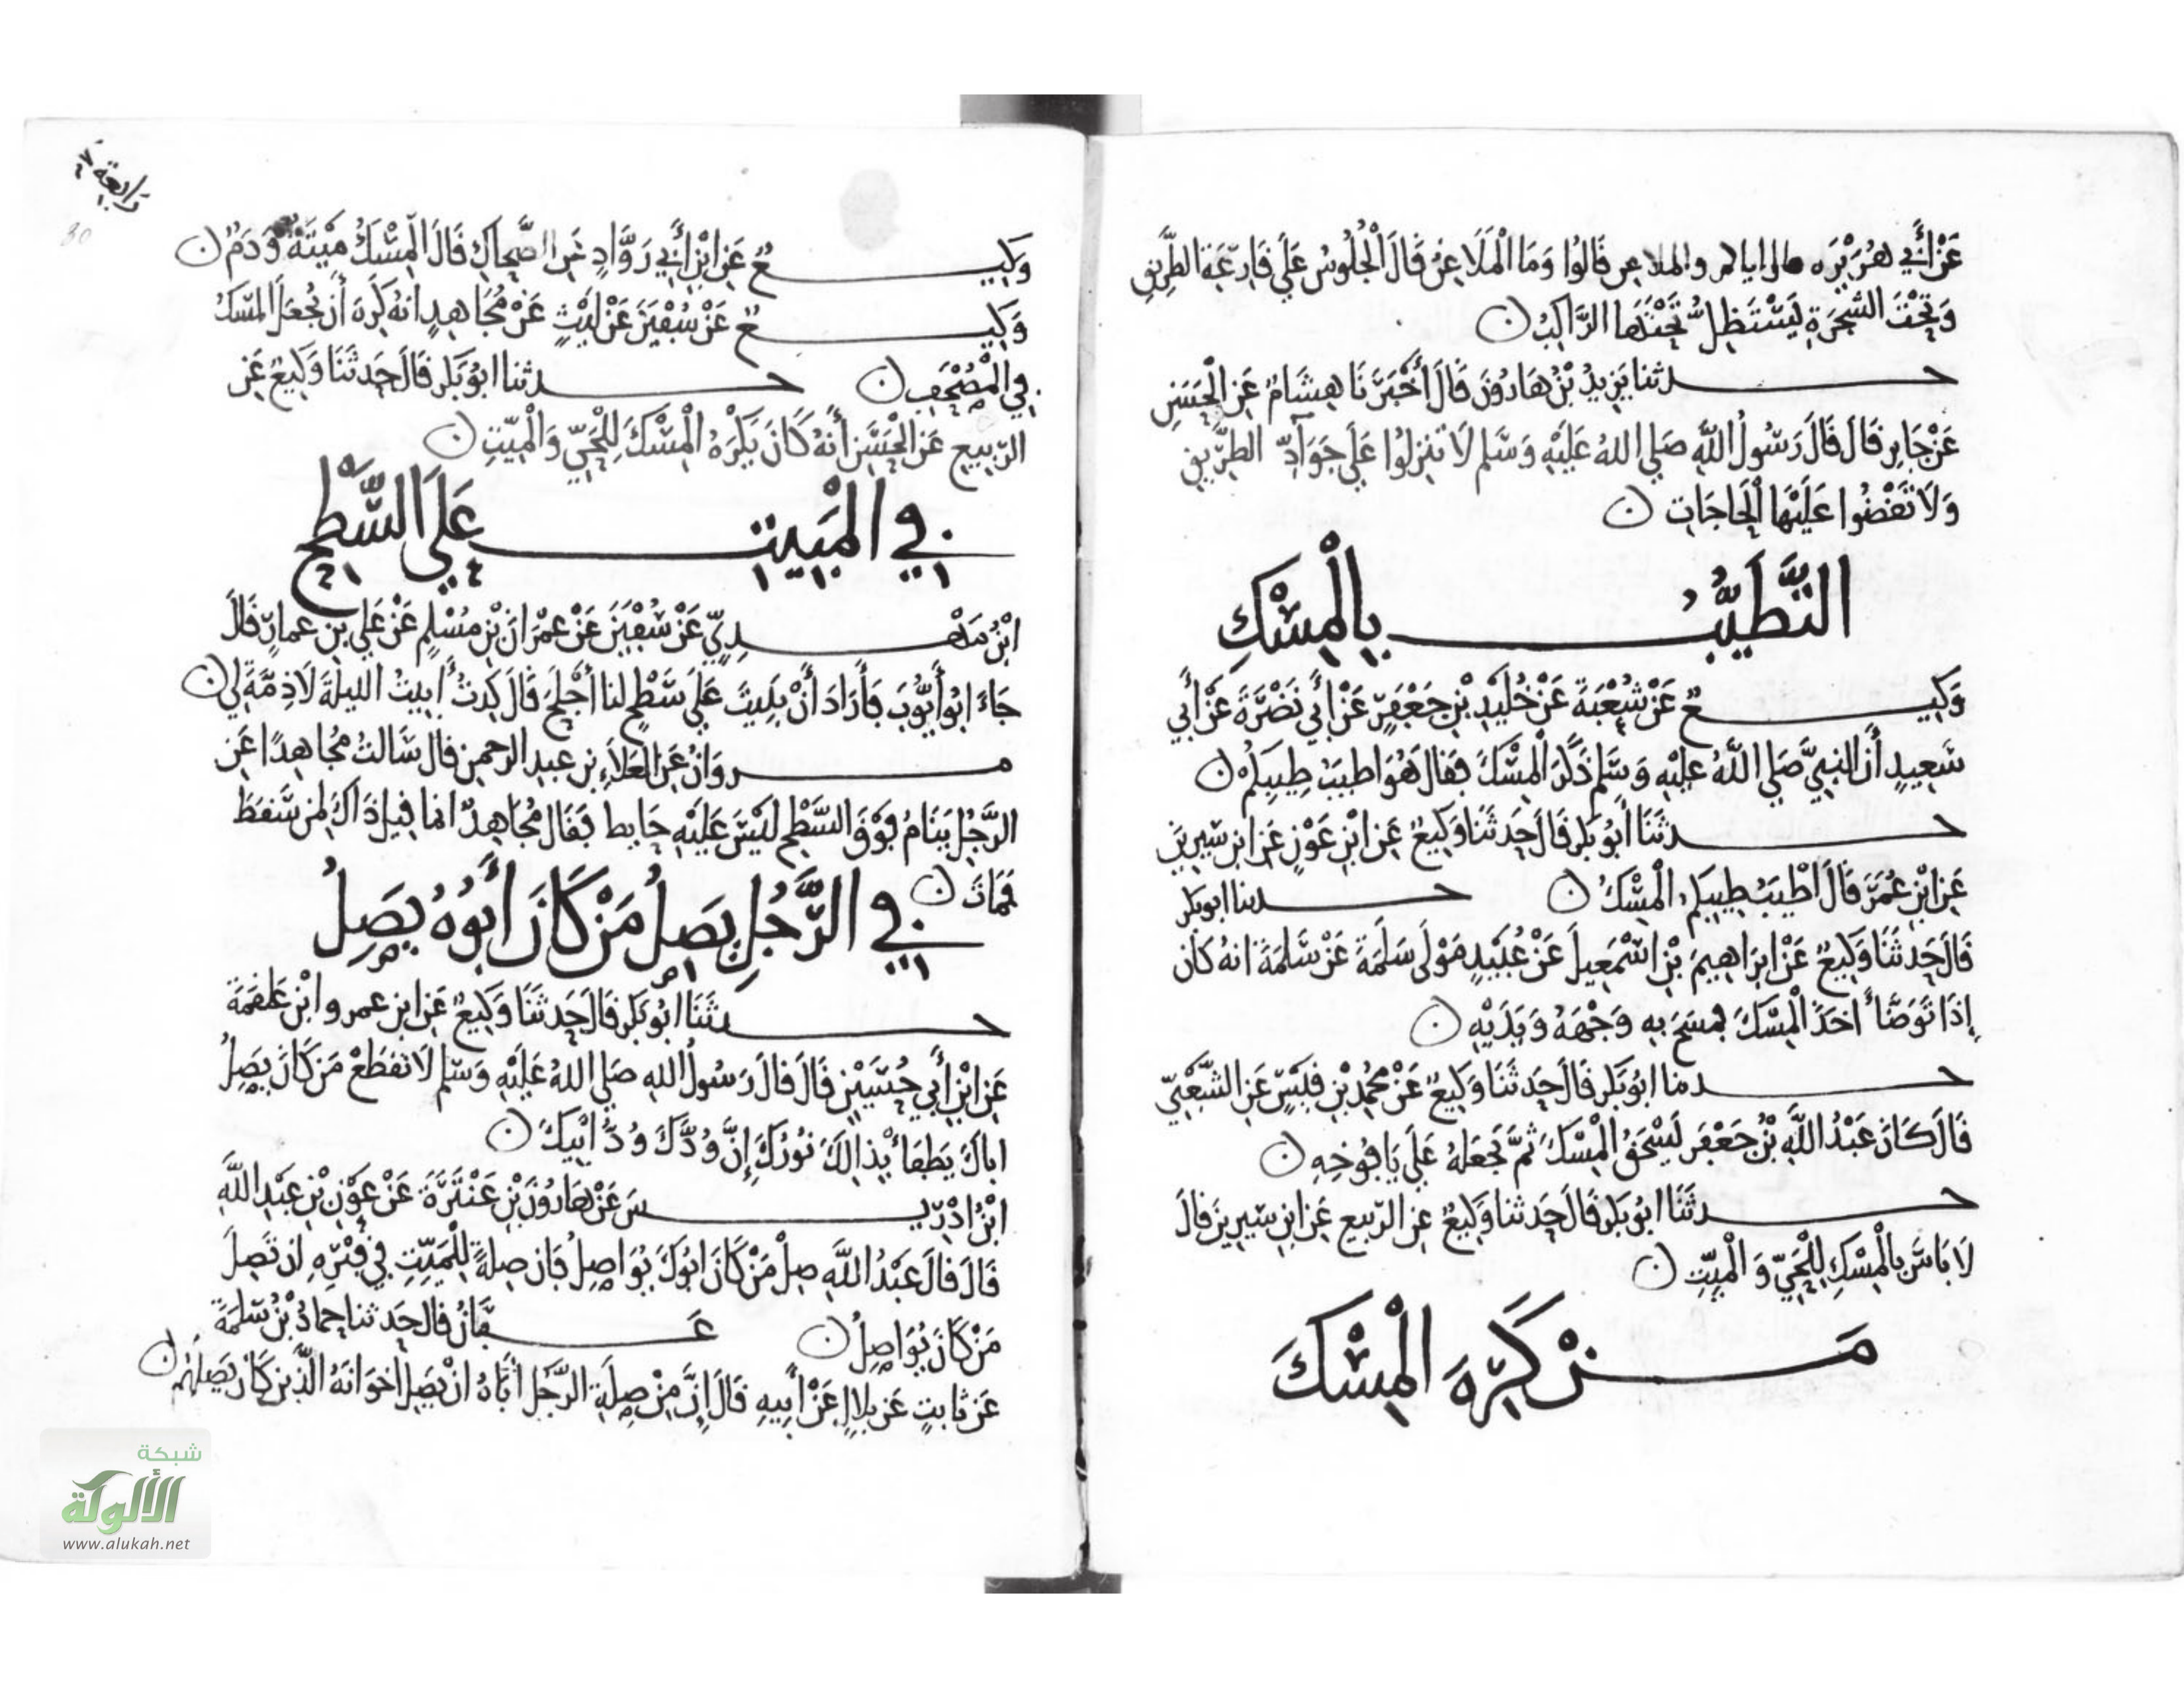 عَنْ أَبِي هُرَيْرَه قال اياكم والملاعن قَالُوا وَمَا الْمَلَاعِنُ قَالَ الْجُلُوسُ عَلَي قَارِعَةِ الطَّرِيقِ
وَتَحْتَ الشَّجَرَةِ يَسْتَظِلُّ تَحْتَهَا الرَّاكِبُ ن
حدثنا يَزِيدُ بْنُ هَارُونَ قَالَ أَخْبَرَنَا هِشَامٌ عَنِ الْحَسَنِ
عَنْ جَابِرٍ قَالَ قَالَ رَسُولُ اللَّهِ صَلي اللهُ عَلَيْهِ وَسَّلم لَا تَنزِلُوا عَلَي جَوَادِّ الطرِّيقِ
وَلَا تَقْضُوا عَلَيْهَا الْحَاجَاتِ ن
التَّطَيُّبُ بِالْمِسْكِ
وَكِيعٌ عَنْ شُعْبَةَ عَنْ خُلَيْدِ بْنِ جَعْفَرٍ عَنْ أَبِي نَضْرَةَ عَنْ أَبِي
سَعِيدٍ أَنَّ النبِيَّ صَلي اللَّهُ عَلَيْهِ وَسَّلم ذَكَرَ الْمِسْكَ فَقَال هُوَ اطيَبُ طِيبِكُمْ ن
حدثَنَا أَبُو بَكرٍ قَالَ حَدثَنَا وَكِيعٌ عَنِ ابْنِ عَوْنٍ عَنِ ابنِ سِيرِينَ
عَنِ ابْنِ عُمَرَ قَالَ أَطْيَبُ طِيبِكم الْمِسْكُ ن حدثنا ابو بكر
قَالَ حَدثَنَا وَكِيعٌ عَنْ ابرَاهِيمَ بْنِ اسْمَعِيلَ عَنْ عُبَيْدٍ مَوْلَى سَلَمَةَ عَنْ سَلَمَةَ انهُ كَان
إِذَا تَوَضَّأَ أَخَذَ الْمِسْكَ فمَسَحَ بِهِ وَجْهَهُ وَيَدَيْهِ ن
حدثنا ابُو بَكرٍ قَالَ حَدثَنَا وَكِيعٌ عَنْ مُحَمَّدِ بْنِ قَيْسٍ عَنِ الشَّعْبِيِّ
قَالَ كَانَ عَبْدُ اللَّهِ بْنُ جَعْفَرٍ يَسْحَقُ الْمِسْكَ ثُمَّ يَجْعَلهُ عَلَى يَافُوخِهِ ن
حدثَنَا ابُو بَكرٍ قَالَ حَدثنا وَكِيعٌ عنِ الرَّبيع عَنِ ابنِ سِيرِينَ قَالَ
لَا بَاسَ بِالْمِسْكِ لِلْحَيِّ وَالْمَيِّتِ ن
مَنْ كَرِهَ الْمِسْكَ
رابعة
80
وَكِيعٌ عَنِ ابْنِ أَبِي رَوَّادٍ عَنِ الضَّحاكِ قَالَ الْمِسْكُ مَيْتَةٌ وَدَمٌ ن
وَكِيعٌ عَنْ سُفْيَنَ عَنْ لَيْثٍ عَنْ مُجَاهِدٍ انهُ كَرِهَ أَن يُجْعَلَ الْمسْكُ
فِي الْمُصْحَفِ ن حدثنا ابُو بَكر قَالَ حَدثَنَا وَكِيعٌ عَنِ
الرَّبِيعِ عَنِ الْحَسَنِ أَنهُ كَانَ يَكْرَهُ الْمِسْكَ لِلْحَيِّ وَالْمَيِّتِ ن
فِي الْمَبِيتِ عَلَي السَّطْحِ
ابْنُ مَهْدِيٍّ عَنْ سُفْيَنَ عَنْ عِمْرَانَ بْنِ مُسْلِمٍ عَنْ عَلِي بنِ عمارٍ قَالَ
جَاءَ ابُو أَيُّوبَ فَأَرَادَ أَنْ يَبِيتَ عَلَي سَطْحٍ لنا أَجْلَحَ قَالَ كِدتُ أَبِيتُ الليلَةَ لَا ذِمَّةَ لِي ن
مروَانُ عَنِ الْعَلَاءِ بنِ عبدِ الرحمنِ قَال سَالتُ مُجَاهِدًا عَنِ
الرَّجُلِ يَنَامُ فَوْقَ السَّطْحِ لَيْسَ عَلَيْهِ حَايط فَقَالَ مُجَاهِدٌ انما قِيلَ ذَاكَ لِمن سَقَطَ
فَمَاتَ ن فِي الرَّجُلِ يَصِلُ مَنْ كَانَ أَبُوهُ يَصِلُ
حدثَنَا ابُو بَكر قَالَ حَدثَنَا وَكِيعٌ عَنِ ابنِ عمرو ابْنِ عَلقَمَةَ
عَنِ ابْنِ أَبِي حُسَيْنٍ قَالَ قَالَ رَسُولُ اللهِ صَلي اللهُ عَلَيْهِ وَسَّلم لَا تَقطَعْ مَن كَانَ يَصِلُ
اباكَ يَطفَأ بِذالِكَ نُورُكَ إِنَّ وُدَّكَ وُدُّ ابِيكَ ن
ابْنُ ادْرِيسَ عَنْ هَارُونَ بْنِ عَنْتَرَةَ عَنْ عَوْنِ بْنِ عَبْدِ اللَّهِ
قَالَ قَالَ عَبْدُ اللَّهِ صِلْ مَنْ كَانَ ابُوكَ يُوَاصِلُ فَان صِلةً لِلْمَيِّتِ فِي قَبْرِهِ ان تَصِلَ
مَنْ كَانَ يُوَاصِلُ ن عَفَّانُ قَال حَدثنا حمادُ بْنُ سَلمَةَ
عَن ثَابتٍ عَن بلالٍ عَنْ أَبِيهِ قَالَ إِنَّ مِنْ صِلَةِ الرَّجُلِ أَبَاهُ انْ يَصِلَ اخوَانَهُ الَّذِينَ كَانَ يَصِلُهُم ن
شبكة
الألوكة
www.alukah.net